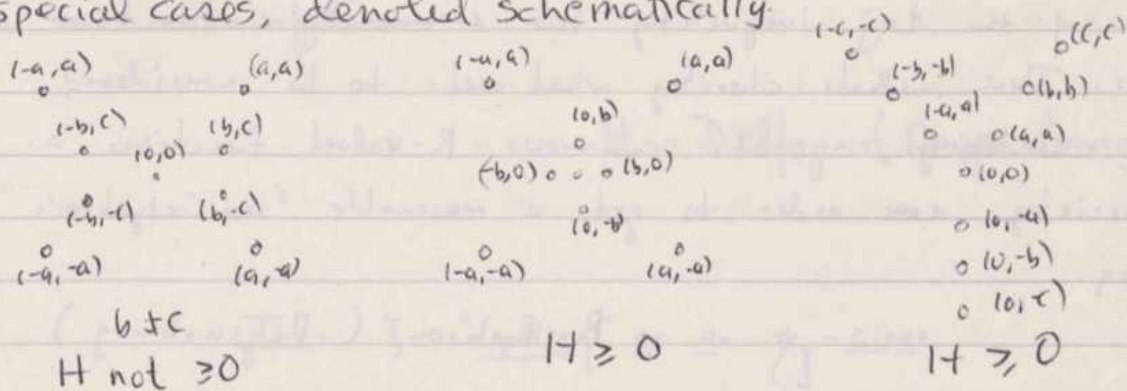 special cases, denoted schematically.
(-a, a) (a, a)
(-b, c) (b, c)
(0,0)
(-b, -c) (b, -c)
(-a, -a) (a, -a)
b ≠ c
H not ≥0
(-a, a) (a, a)
(0, b)
(-b, 0) (b, 0)
(0, -b)
(-a, -a) (a, -a)
H ≥ 0
(-c, -c) (c, c)
(-b, -b) (b, b)
(-a, a) (a, a)
(0,0)
(0, -a)
(0, -b)
H ≥ 0